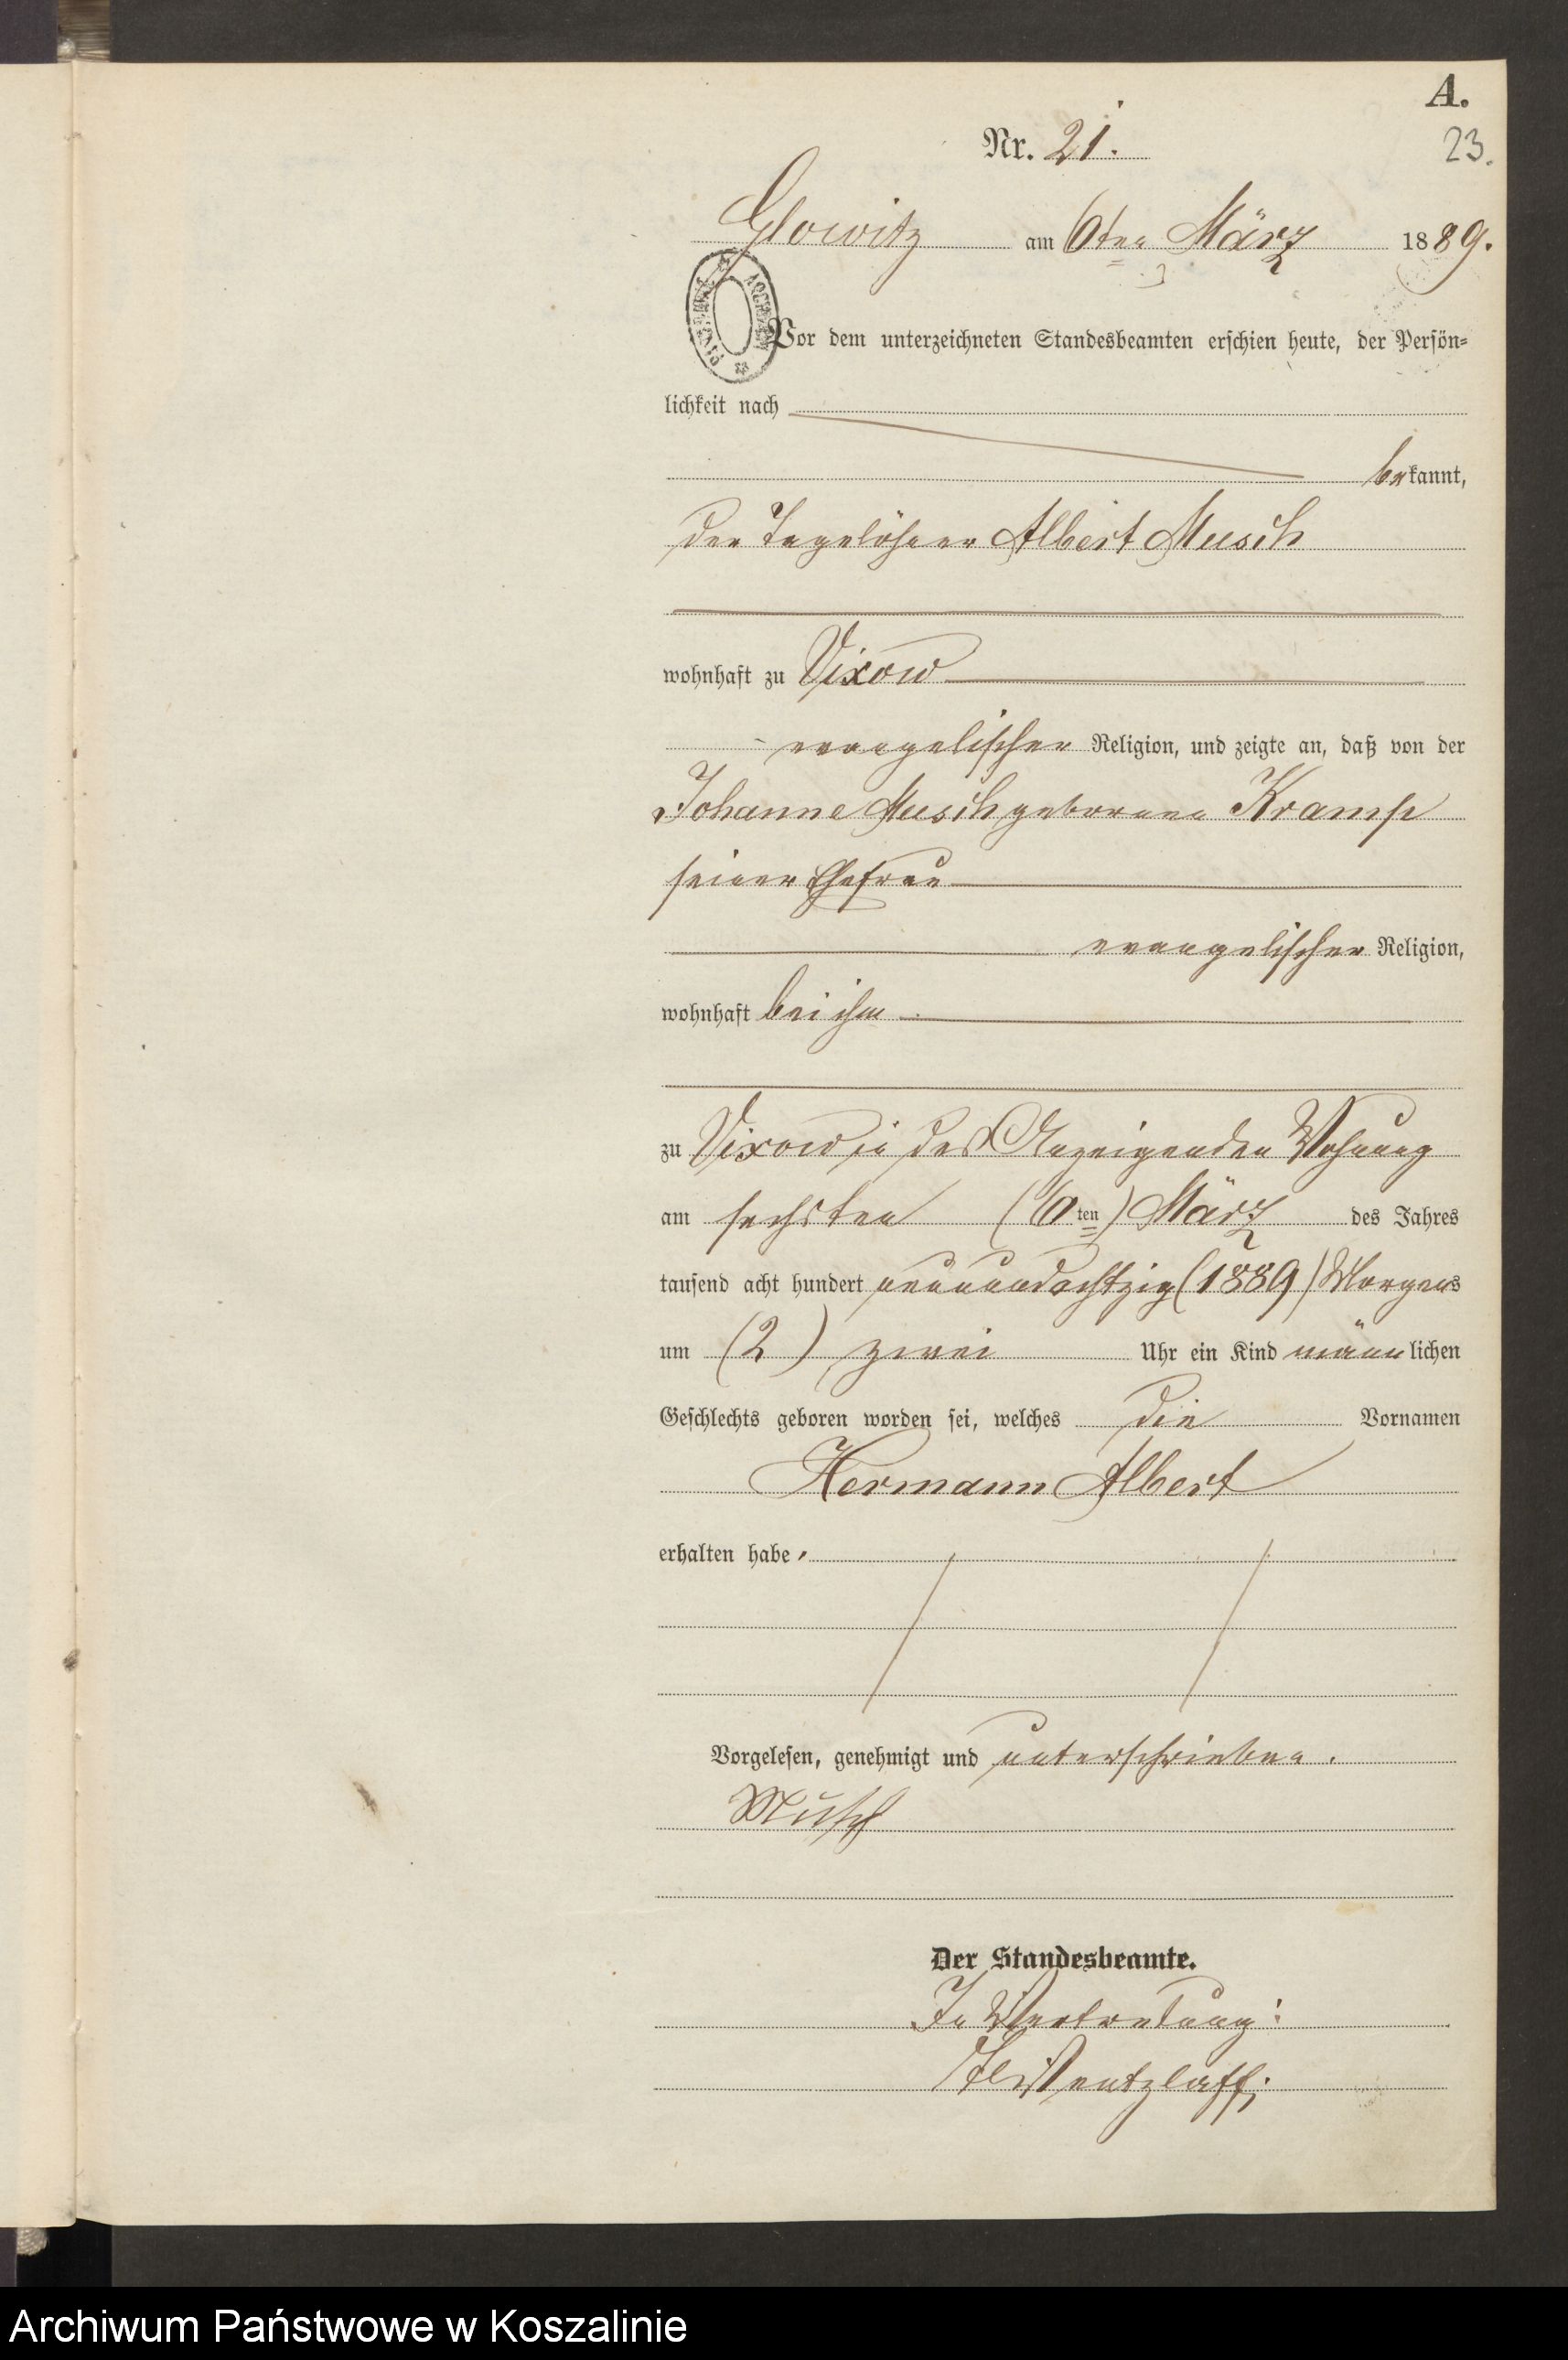 A.
Nr. 21.
23.
Glowitz am 6ten März 1889.
Vor dem unterzeichneten Standesbeamten erschien heute, der Persön=
lichkeit nach
bekannt,
der Tagelöhner Albert Musch
wohnhaft zu Vixow
evangelischer Religion, und zeigte an, daß von der
Johanne Musch geborenen Kramp
seiner Ehefrau
evangelischer Religion,
wohnhaft bei ihm
zu Vixow in des Anzeigenden Wohnung
am sechsten (6ten) März des Jahres
tausend acht hundert neunundachtzig (1889) Morgens
um (2) zwei Uhr ein Kind männlichen
Geschlechts geboren worden sei, welches die Vornamen
Hermann Albert
erhalten habe.
Vorgelesen, genehmigt und unterschrieben.
Musch
Der Standesbeamte.
In Vertretung:
Archiwum Państwowe w Koszalinie